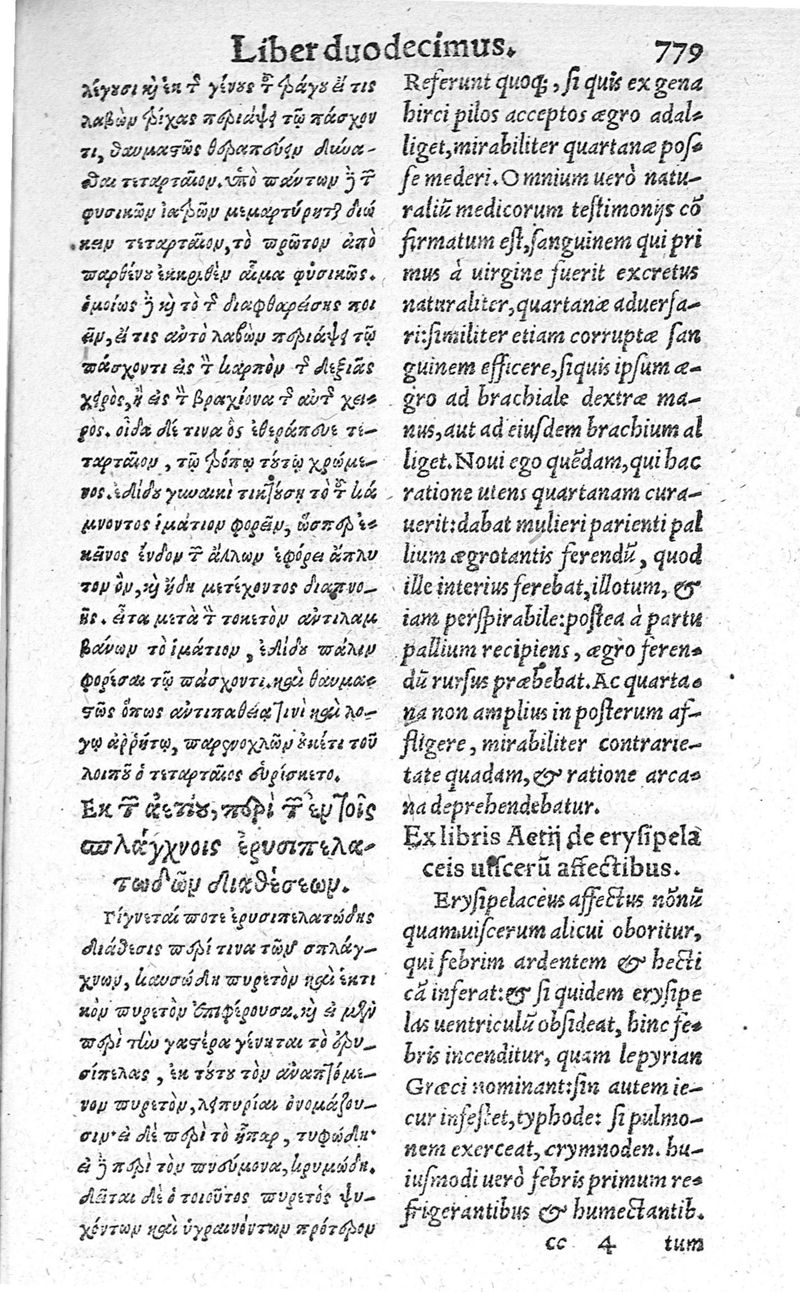 Liber duodecimus. 779
λέγουσι καὶ ἐκ τ γένους τ τράγου εἴ τις
λαβὼν τρίχας περιάψει τῷ πάσχον
τι, θαυμαστῶς θεραπεύειν δύνα-
σθαι τεταρταῖον. ὑπὸ πάντων δὲ τ
φυσικῶν ἰατρῶν μεμαρτύρηται διώ
κειν τεταρταῖον, τὸ πρῶτον ἀπὸ
παρθένου ἐκκριθὲν αἷμα φυσικῶς.
ὁμοίως δὲ καὶ τὸ τ διαφθαρείσης ποι
εῖν, εἴ τις αὐτὸ λαβὼν περιάψει τῷ
πάσχοντι εἰς τ καρπὸν τ δεξιᾶς
χειρὸς, ἢ εἰς τ βραχίονα τ αὐτ χει-
ρός. οἶδα δέ τινα ὃς ἐθεράπευε τε-
ταρταῖον, τῷ τρόπῳ τούτῳ χρώμε-
νος. ἐδίδου γυναικὶ τικτούσῃ τὸ τ κά
μνοντος ἱμάτιον φορεῖν, ὥσπερ ἐ-
κεῖνος ἔνδον τ ἄλλων ἐφόρει ἄπλυ
τον ὂν, καὶ ἤδη μετέχοντος διαπνο-
ῆς. εἶτα μετὰ τ τοκετὸν ἀντιλαμ
βάνων τὸ ἱμάτιον, ἐδίδου πάλιν
φορέσαι τῷ πάσχοντι. καὶ θαυμα-
στῶς ὅπως ἀντιπαθείᾳ τινὶ καὶ λό-
γῳ ἀῤῥήτῳ, παρενοχλῶν οὐκέτι τοῦ
λοιποῦ ὁ τεταρταῖος εὑρίσκετο.
Ἐκ τ ἀετίου, περὶ τ ἐν τοῖς
σπλάγχνοις ἐρυσιπελα-
τωδῶν διαθέσεων.
Γίγνεταί ποτε ἐρυσιπελατώδης
διάθεσις περί τινα τῶν σπλάγ-
χνων, καυσώδη πυρετὸν καὶ ἑκτι
κὸν πυρετὸν ἐπιφέρουσα. καὶ εἰ μὲν
περὶ τὴν γαστέρα γένηται τὸ ἐρυ-
σίπελας, ἐκ τούτου τὸν ἀναπτόμε-
νον πυρετὸν, λειπυρίαν ὀνομάζου-
σιν· εἰ δὲ περὶ τὸ ἧπαρ, τυφώδη·
εἰ δὲ περὶ τὸν πνεύμονα, κρυμώδη.
δεῖται δὲ ὁ τοιοῦτος πυρετὸς ψυ-
χόντων καὶ ὑγραινόντων πρότερον
Referunt quoq;, si quis ex gena
hirci pilos acceptos ægro adal-
liget, mirabiliter quartanæ pos-
se mederi. Omnium uerò natu-
raliū medicorum testimonijs cō
firmatum est, sanguinem qui pri
mus à uirgine fuerit excretus
naturaliter, quartanæ aduersa-
ri: similiter etiam corruptæ san
guinem efficere, si quis ipsum æ-
gro ad brachiale dextræ ma-
nus, aut ad eiusdem brachium al
liget. Noui ego quēdam, qui hac
ratione utens quartanam cura-
uerit: dabat mulieri parienti pal
lium ægrotantis ferendū, quod
ille interius ferebat, illotum, &
iam perspirabile: postea à partu
pallium recipiens, ægro feren-
dū rursus præbebat. Ac quarta-
na non amplius in posterum af-
fligere, mirabiliter contrarie-
tate quadam, & ratione arca-
na deprehendebatur.
Ex libris Aetij de erysipela
ceis uiscerū affectibus.
Erysipelaceus affectus nōnū
quam uiscerum alicui oboritur,
qui febrim ardentem & hecti
cā inferat: & si quidem erysipe
las uentriculū obsideat, hinc fe-
bris incenditur, quam lepyrian
Græci nominant: sin autem ie-
cur infestet, typhode: si pulmo-
nem exerceat, crymnoden. hu-
iusmodi uerò febris primum re-
frigerantibus & humectantib.
cc 4 tum